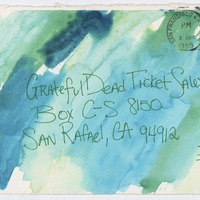 Grateful Dead Ticket Sales
Box C-S 8150
San Rafael, CA 94912
PM